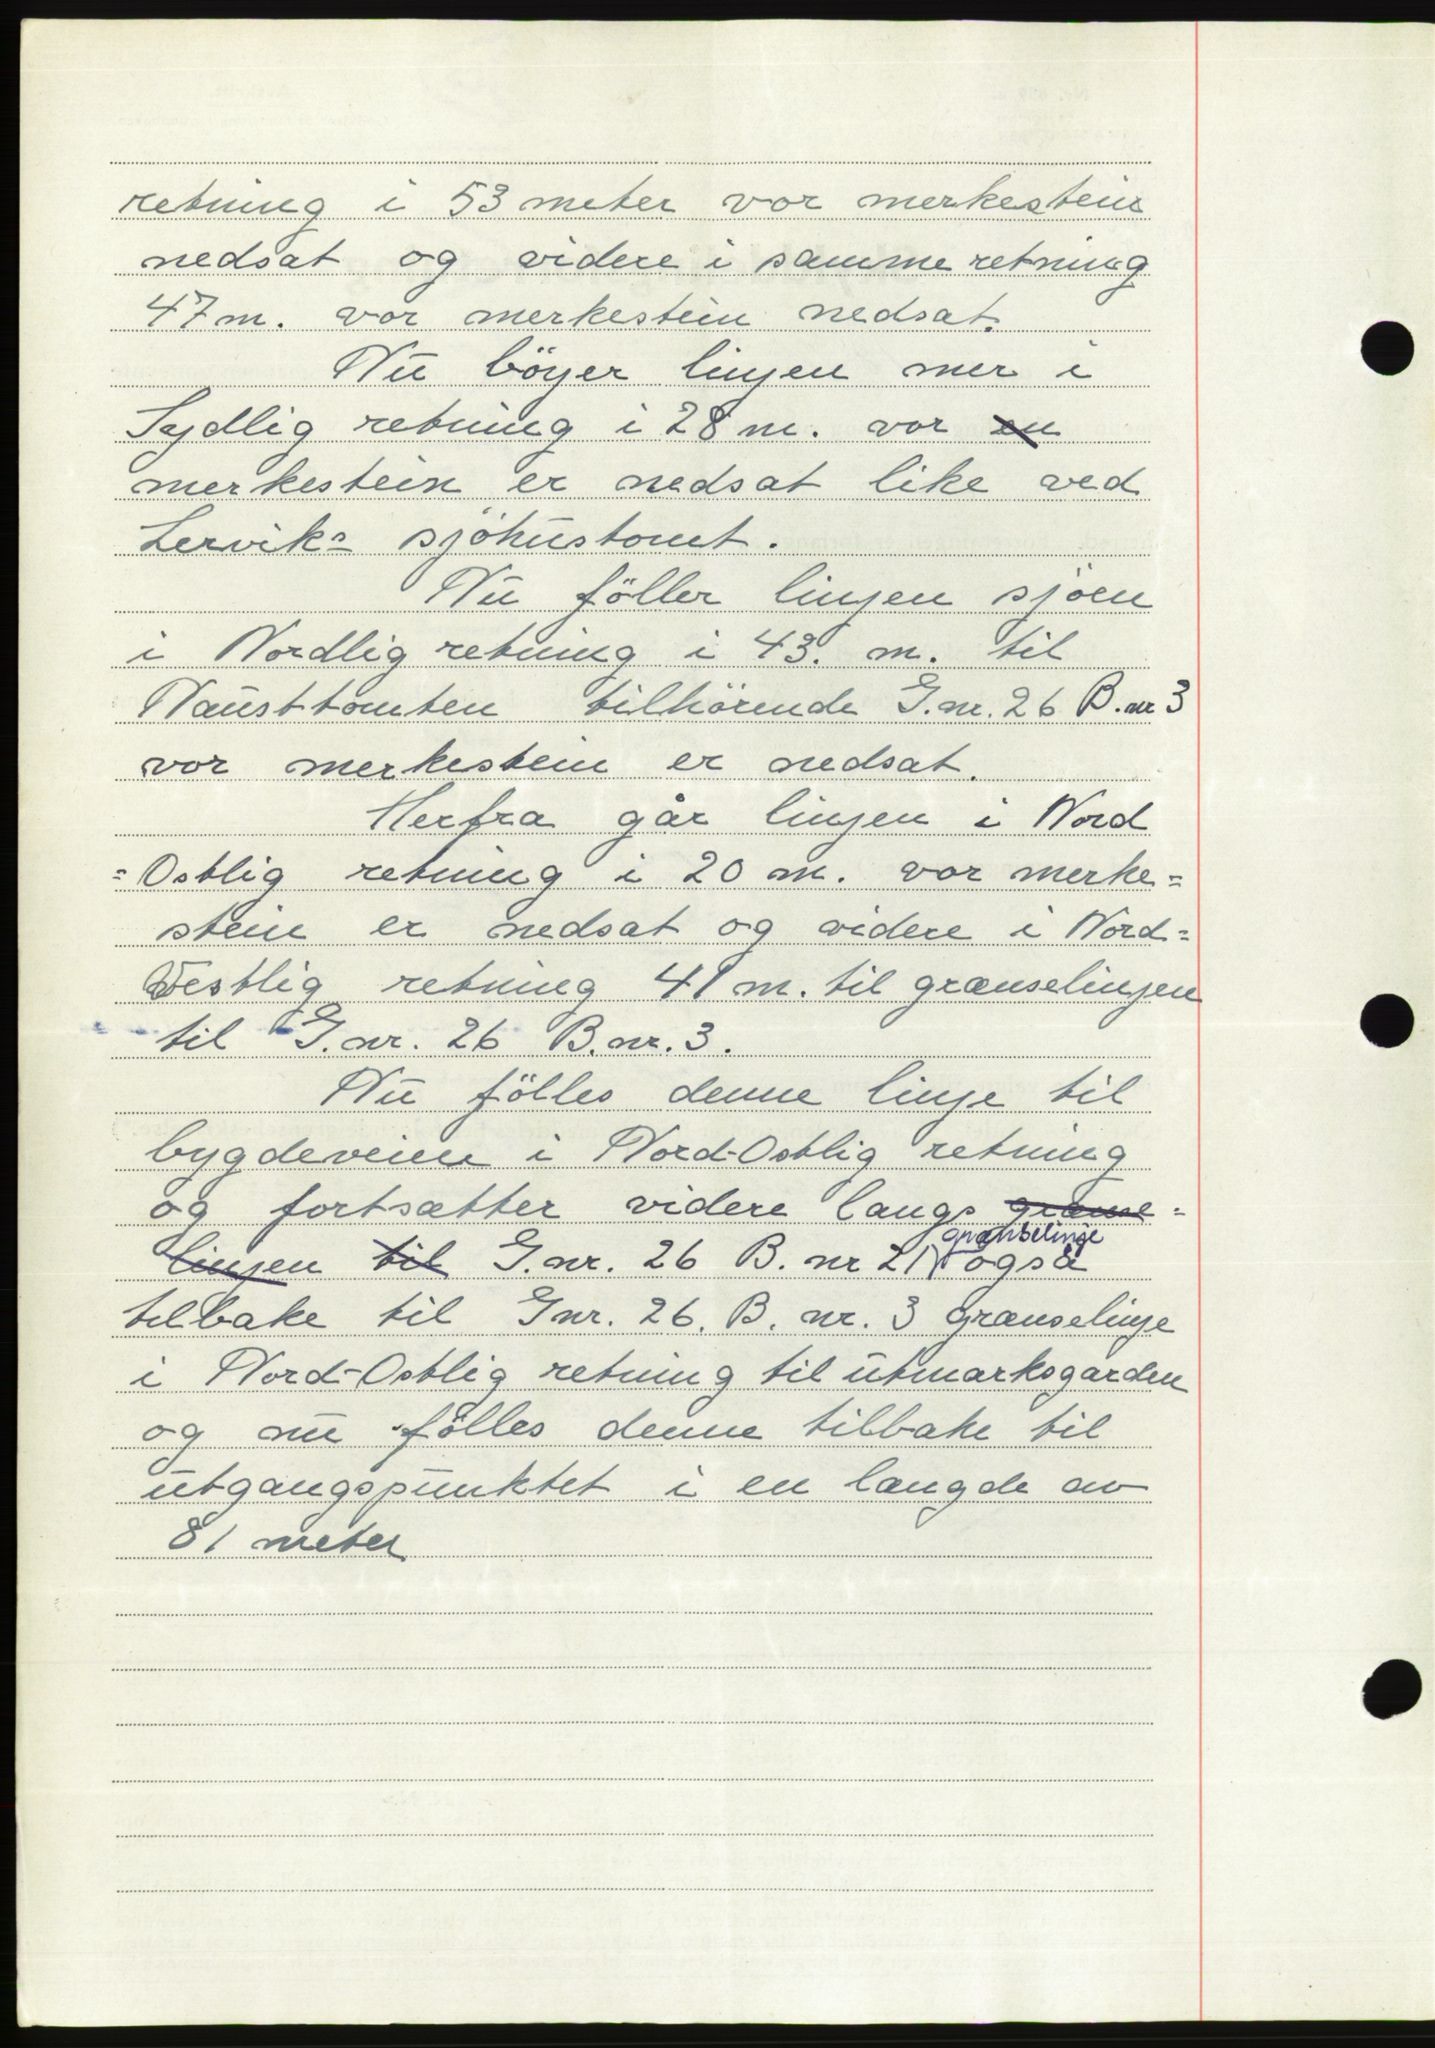 retning i 53 meter vor merkestein
nedsat og videre i samme retning
47 m. vor merkestein nedsat.
Nu böyer linjen mer i
Sydlig retning i 28 m. vor en
merkestein er nedsat like ved
Lervik= sjöhustomt.
Nu föller linjen sjöen
i Nordlig retning i 43. m. til
Nausttomten tilhörende G.nr. 26 B.nr 3
vor merkestein er nedsat.
Herfra går linjen i Nord
=Ostlig retning i 20 m. vor merke=
stein er nedsat og videre i Nord=
Vestlig retning 41 m. til grænselinjen
til G.nr. 26 B.nr. 3.
Nu fölles denne linje til
bygdeveien i Nord-Ostlig retning
og fortsætter videre langs grænse=
linjen til G.nr. 26 B. nr 21 grænselinje også
tilbake til Gnr. 26. B. nr. 3 grænselinje
i Nord-Ostlig retning til utmarksgarden
og nu fölles denne tilbake til
utgangspunktet i en længde av
81 meter